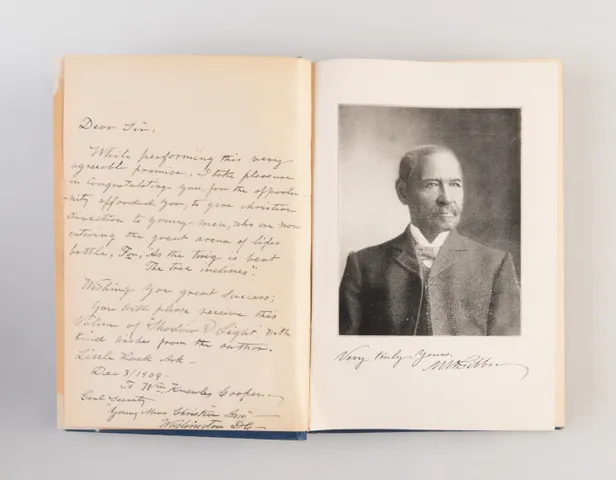 Dear Sir,
While performing this very
agreable promise. I take pleasure
in Congratulating you, for the opportu-
-nity afforded you, to give christian
direction to young men, who are now
entering the great arena of lifes
battle, For, As the twig is bent
The tree inclines".
Wishing You great Success;
You will please receive this
Volum of "Shadow & Light" with
kind wishes from the author.
Little Rock Ark—
Dec 3/1909—
To Wm Knowles Cooper—
Genl Secrety
"Young Mens Christin Asso"—
Washington D.C—
Very truly Yours,
M W Gibbs